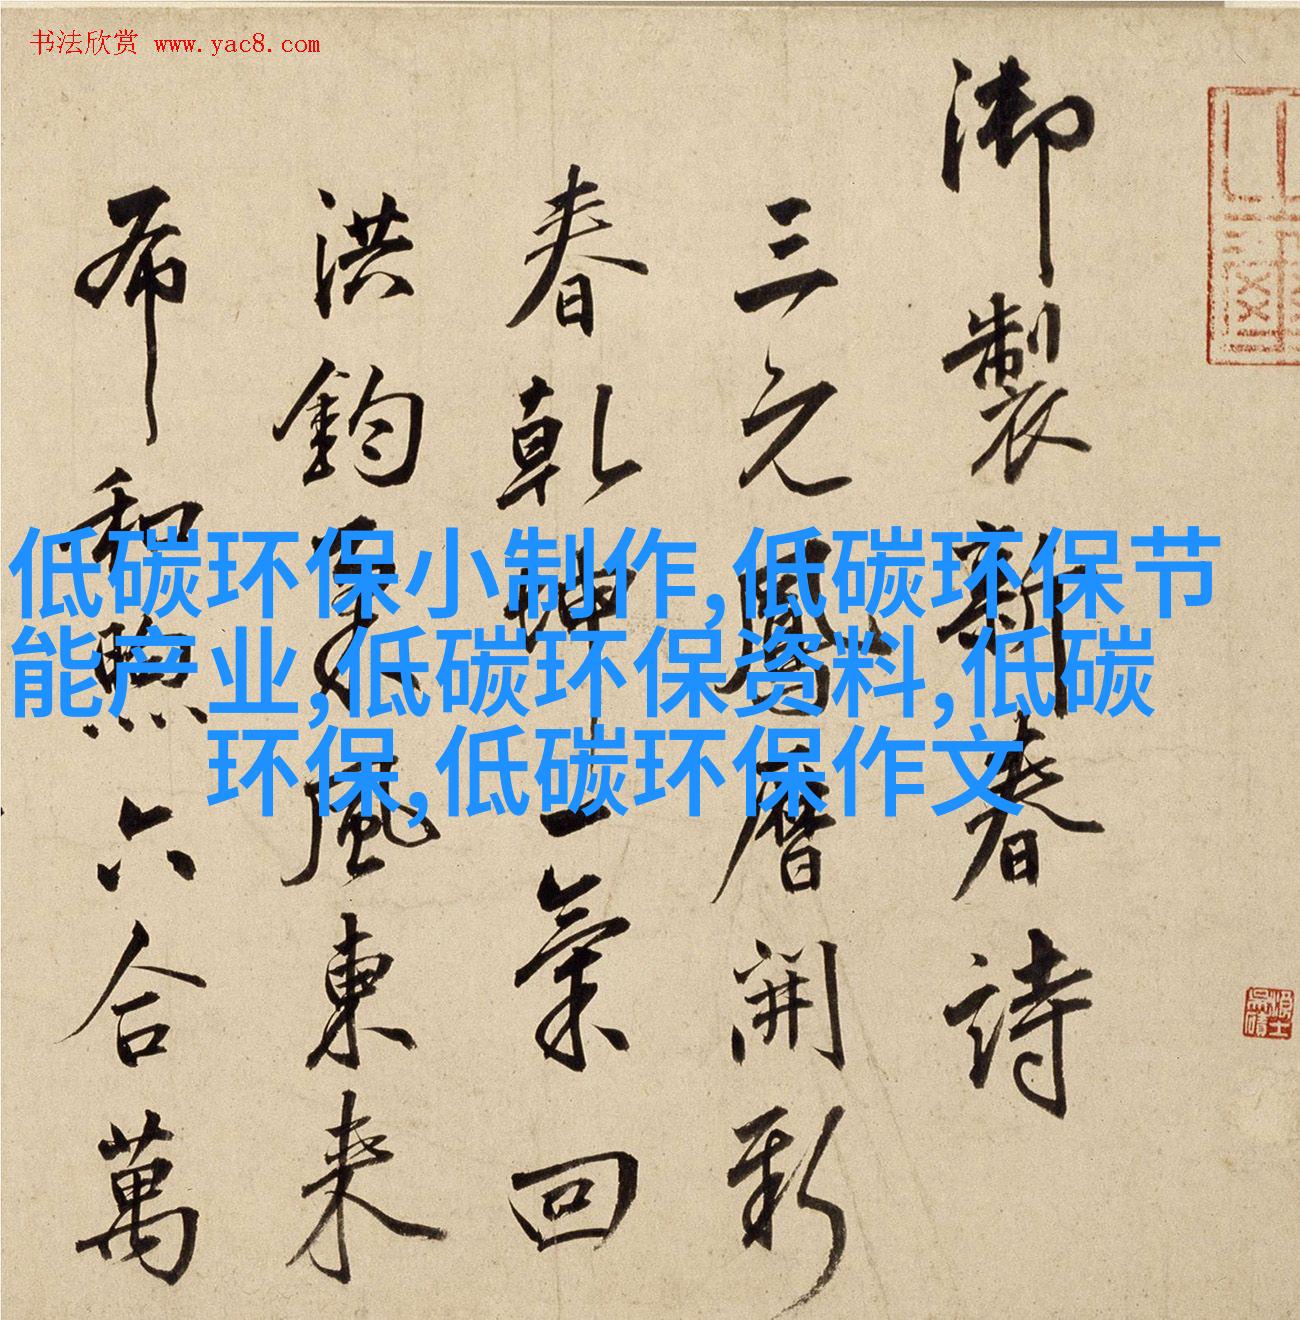 书法欣赏 www.yac8.com
御製新春詩
三元鳳曆開新
春乾坤一氣回
洪鈞風東来
布和煦六合萬
低碳环保小制作,低碳环保节
能产业,低碳环保资料,低碳
环保,低碳环保作文